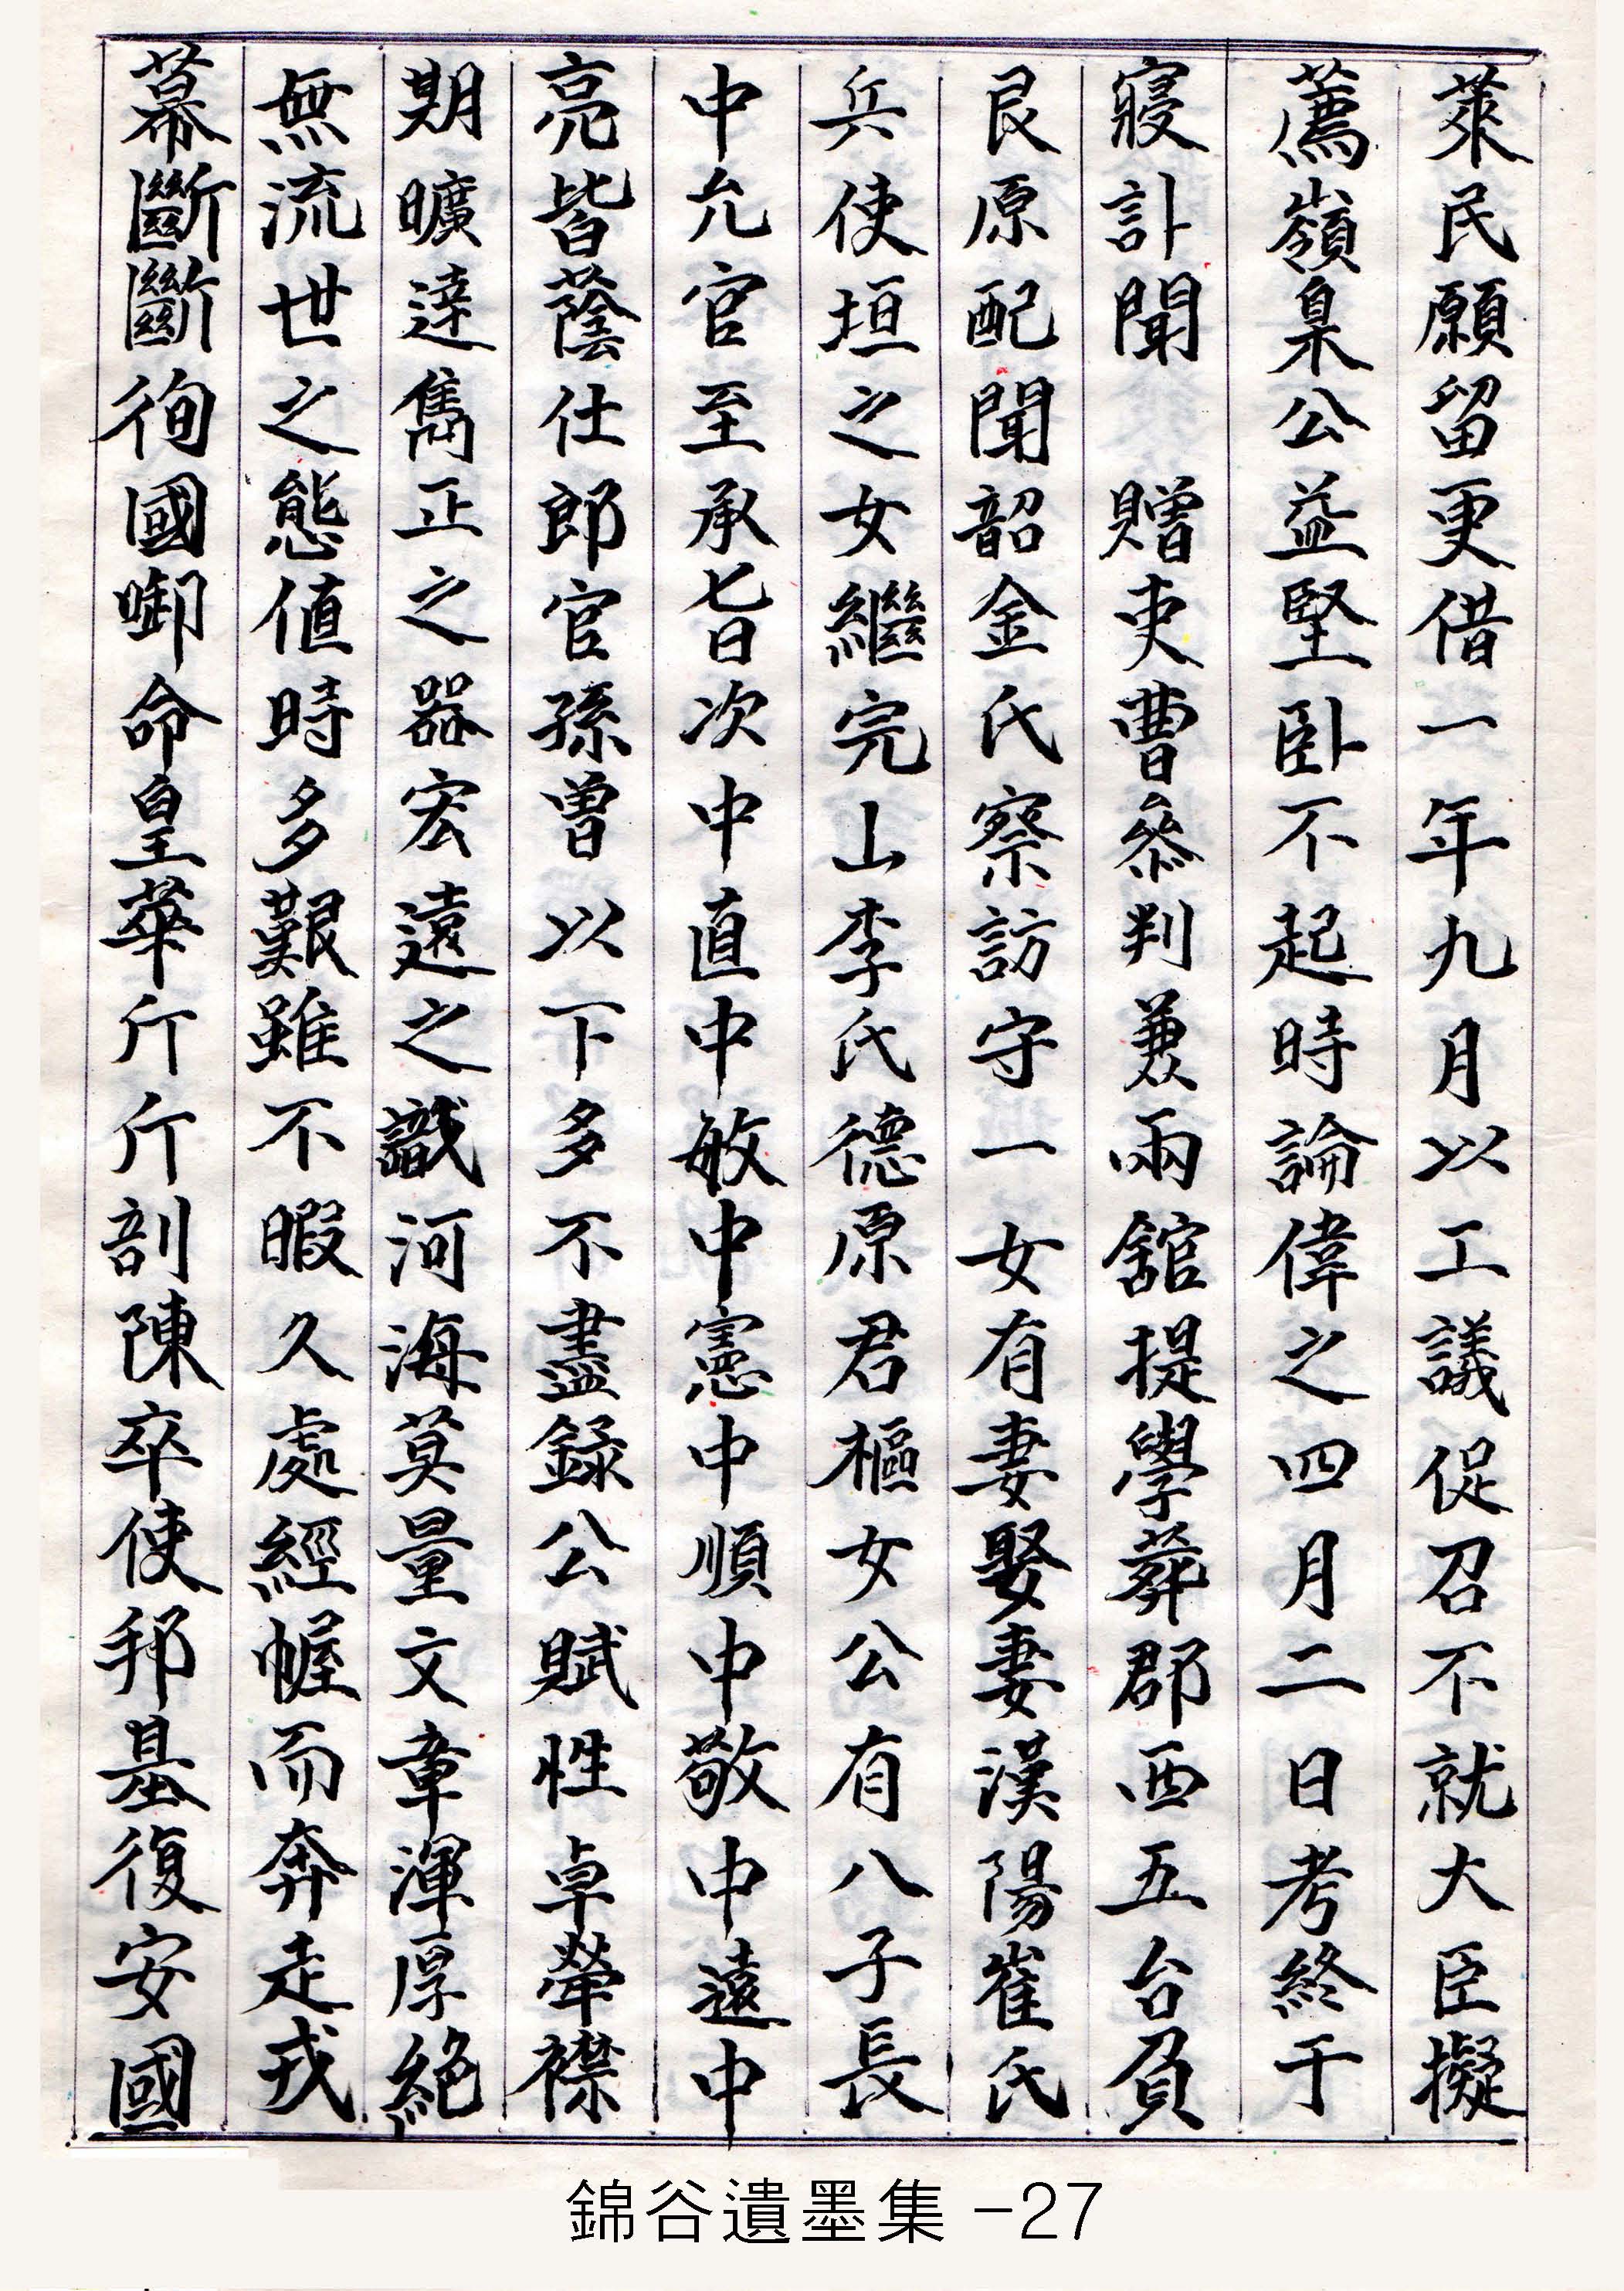 萊民願留更借一年九月以工議促召不就大臣擬
薦嶺臬公益堅臥不起時論偉之四月二日考終于
寢訃聞 贈吏曹參判兼兩舘提學葬郡西五台負
艮原配聞韶金氏察訪守一女有妻娶妻漢陽崔氏
兵使垣之女繼完山李氏德原君樞女公有八子長
中允官至承旨次中直中敏中憲中順中敬中遠中
亮皆蔭仕郎官孫曾以下多不盡錄公賦性卓犖襟
期曠達雋正之器宏遠之識河海莫量文章渾厚絕
無流世之態値時多艱雖不暇久處經幄而奔走戎
幕斷斷徇國啣命皇華斤斤剖陳卒使邦基復安國
錦谷遺墨集 -27